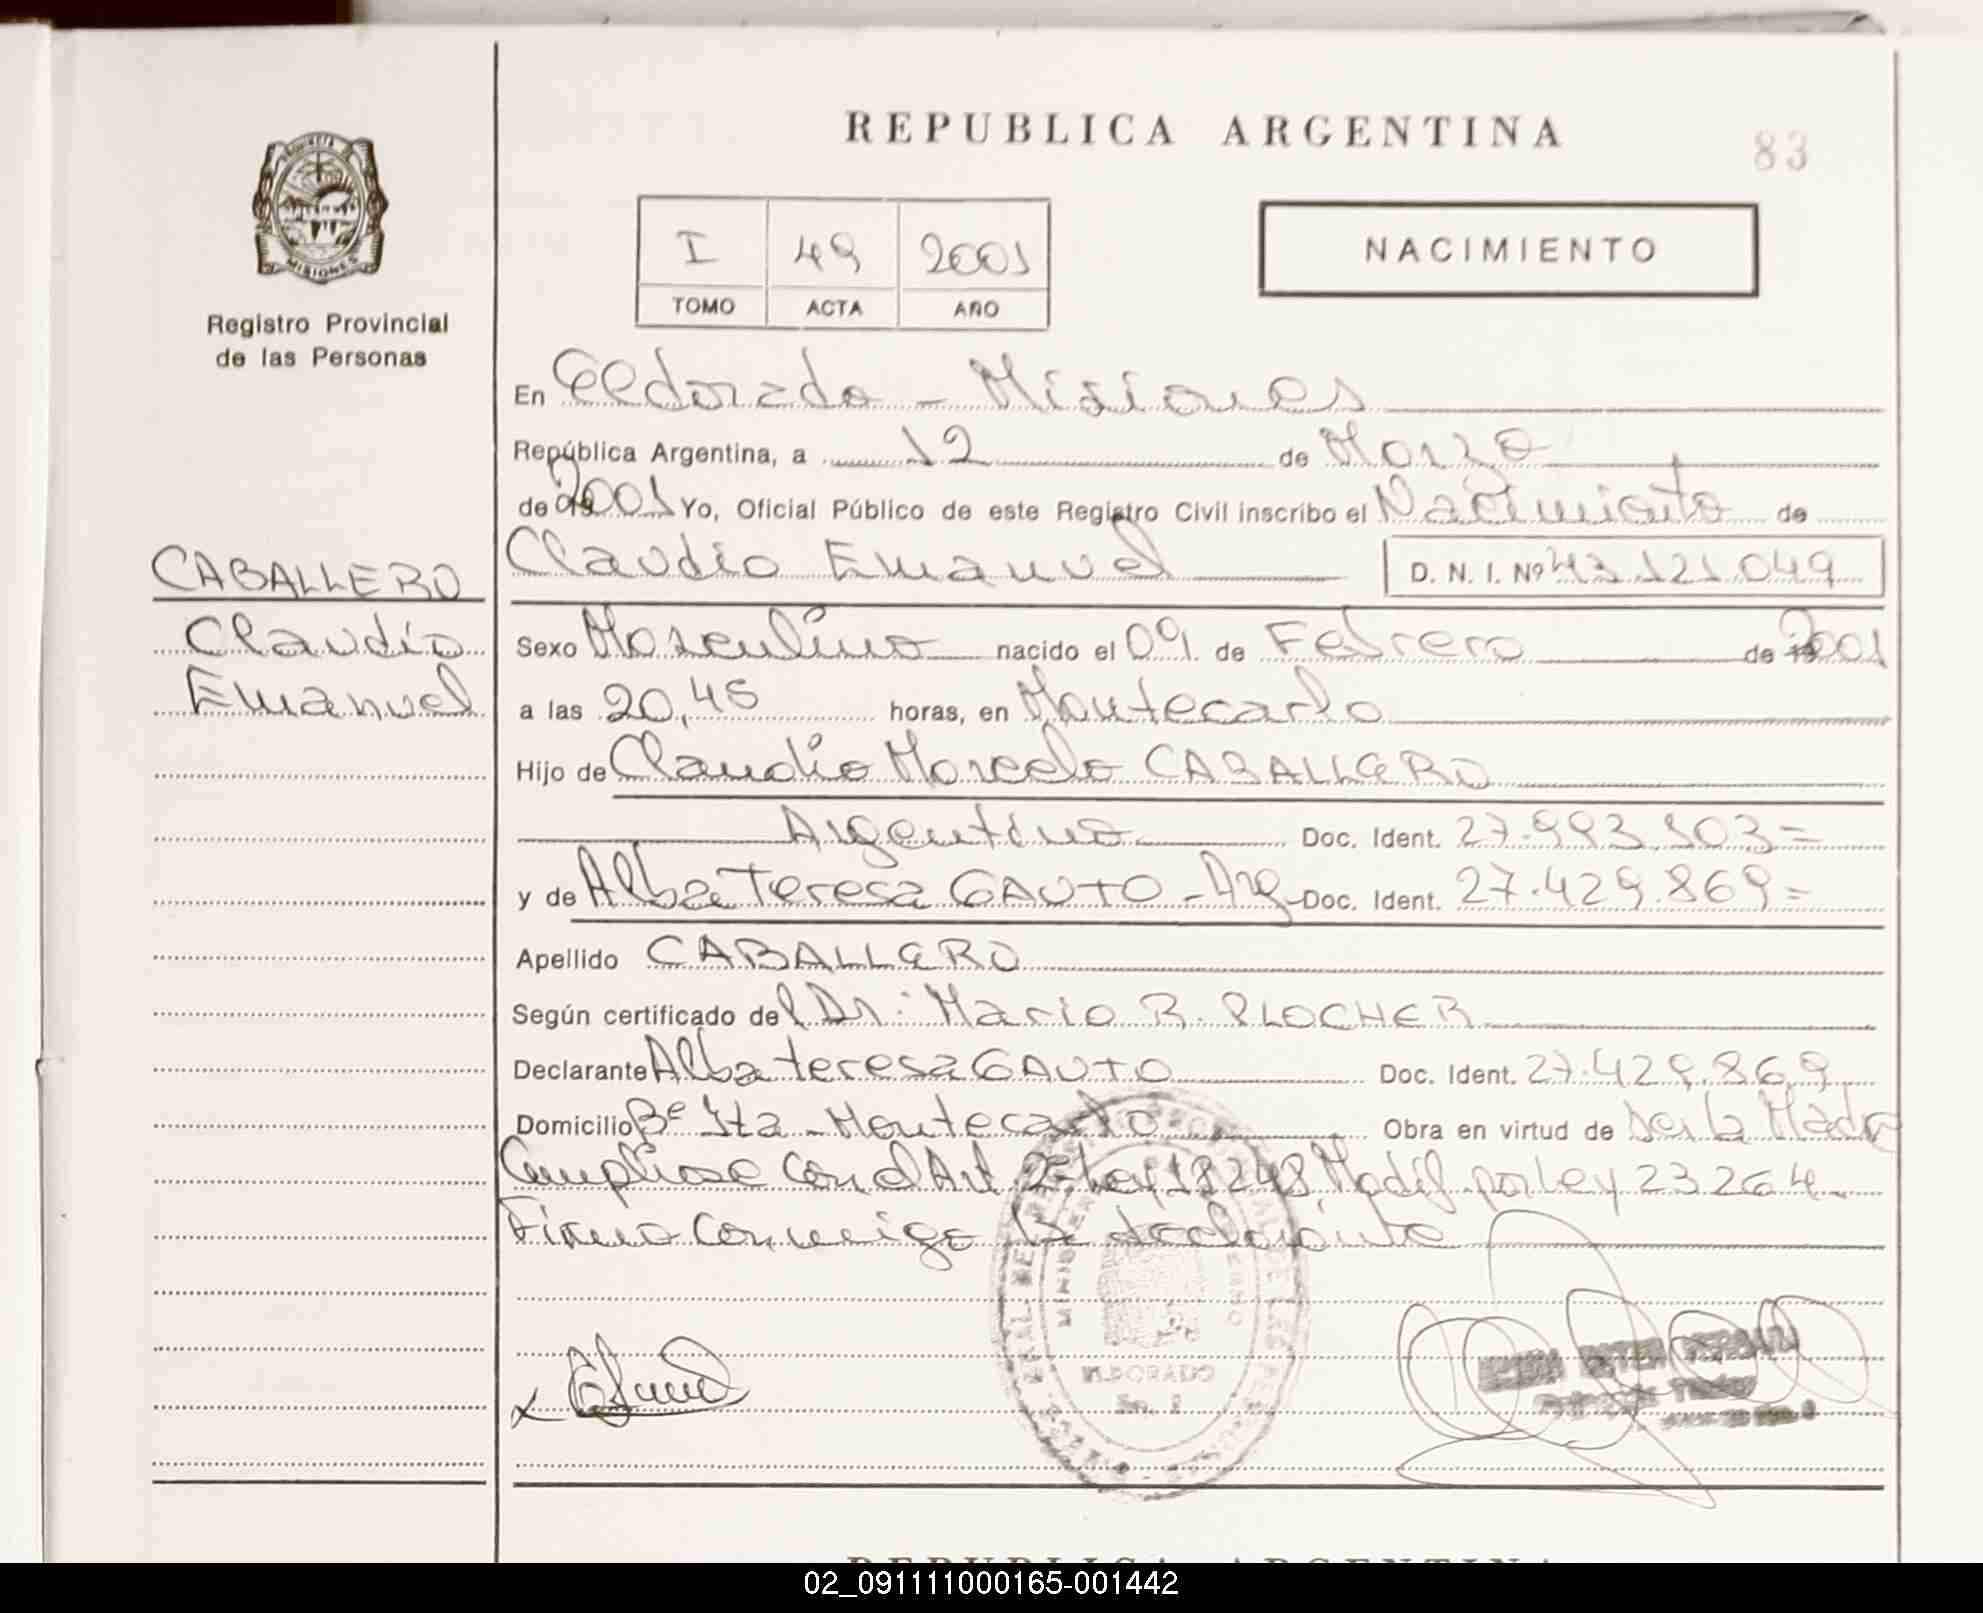 REPUBLICA ARGENTINA
83
MISIONES
Registro Provincial
de las Personas
I 49 2001
TOMO ACTA AÑO
NACIMIENTO
En Eldorado - Misiones
República Argentina, a 12 de Marzo
de 2001 Yo, Oficial Público de este Registro Civil inscribo el Nacimiento de
CABALLERO
Claudio
Emanuel
Claudio Emanuel D. N. I. Nº 43.121.049
Sexo Masculino nacido el 09 de Febrero de 2001
a las 20,45 horas, en Montecarlo
Hijo de Claudio Marcelo CABALLERO
Argentino Doc. Ident. 27.993.503=
y de Alba Teresa GAUTO - Arg Doc. Ident. 27.429.869=
Apellido CABALLERO
Según certificado del Dr: Mario R. PLOCHER
Declarante Alba teresa GAUTO Doc. Ident. 27.429.869
Domicilio Bº Ita - Montecarlo Obra en virtud de ser la Madre
Cumpliose con el Art. 2º Ley 18248 Modif. por Ley 23264
Firma conmigo la declarante
ELDORADO
02_091111000165-001442